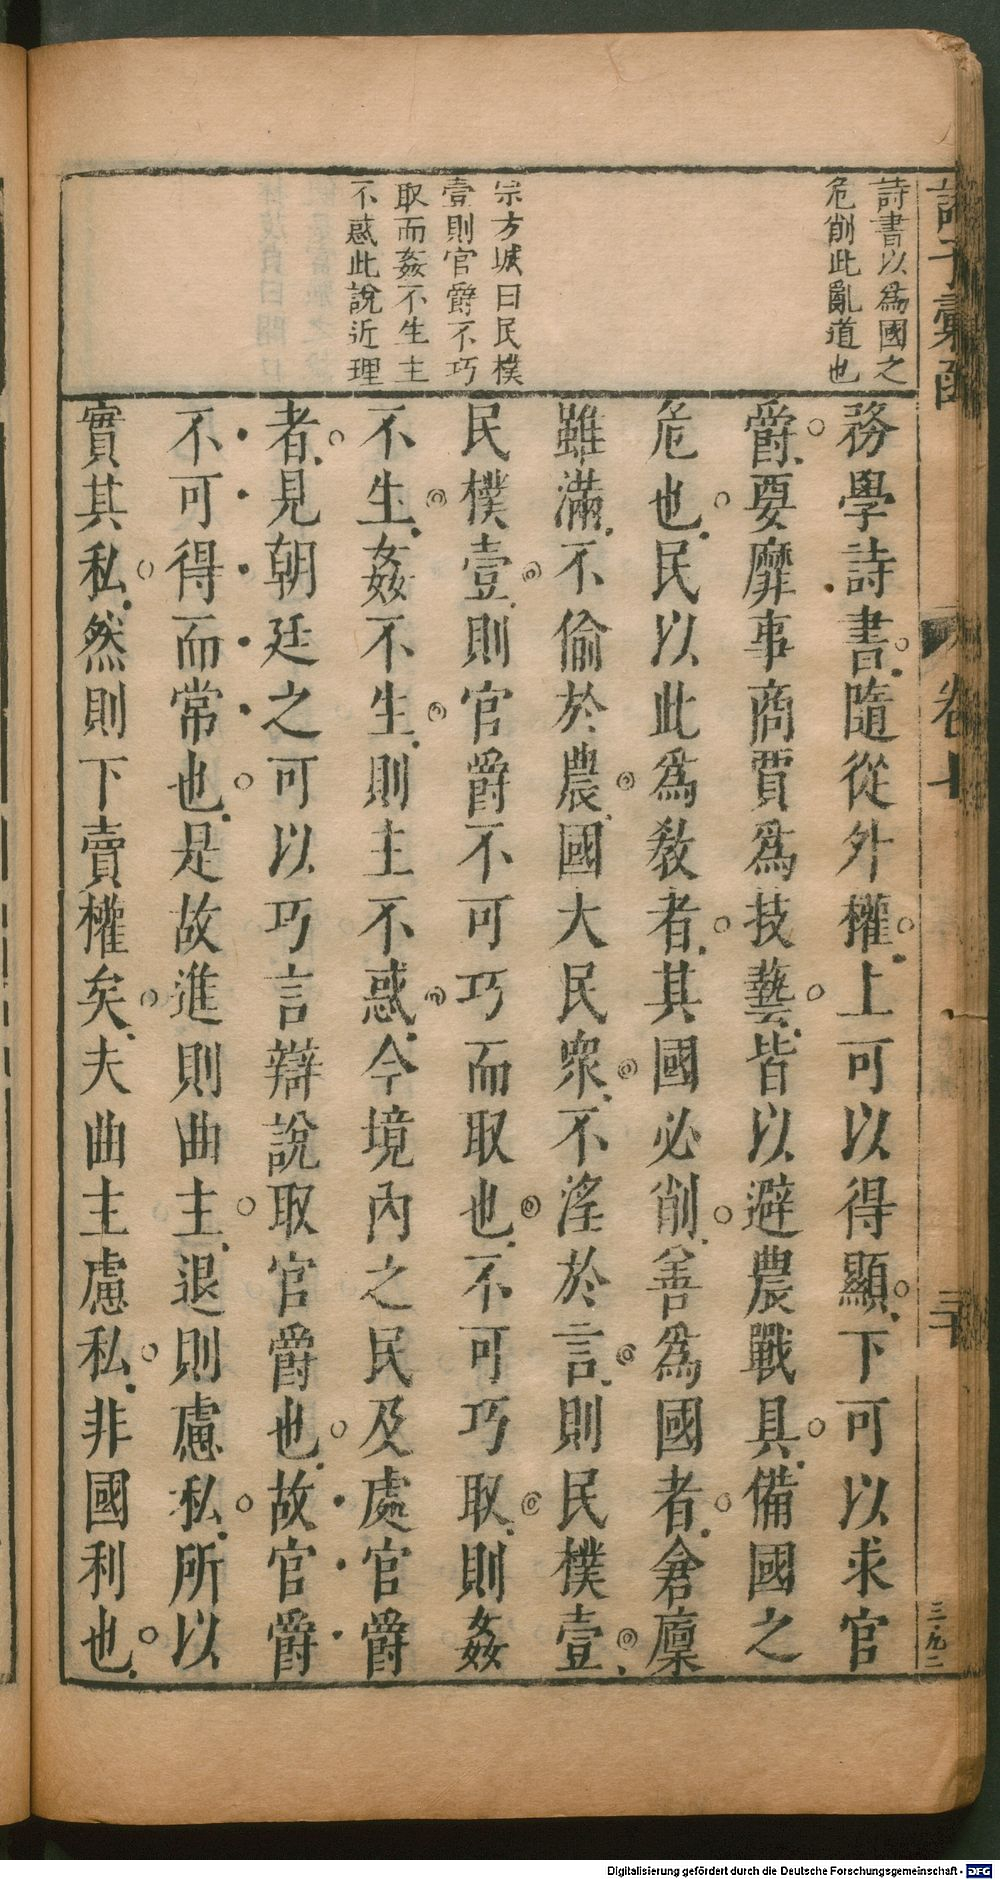 諸子彙函
卷七
三十
三九二
詩書以爲國之
危削此亂道也
宗方城曰民樸
壹則官爵不巧
取而姦不生主
不惑此說近理
務學詩書隨從外權上可以得顯下可以求官
爵要靡事商賈爲技藝皆以避農戰具備國之
危也民以此爲敎者其國必削善爲國者倉廩
雖滿不偷於農國大民衆不淫於言則民樸壹
民樸壹則官爵不可巧而取也不可巧取則姦
不生姦不生則主不惑今境內之民及處官爵
者見朝廷之可以巧言辯說取官爵也故官爵
不可得而常也是故進則曲主退則慮私所以
實其私然則下賣權矣夫曲主慮私非國利也
Digitalisierung gefördert durch die Deutsche Forschungsgemeinschaft - DFG